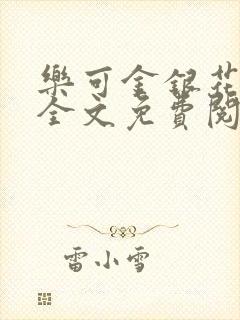 樂可金銀花
全文免費閱
雷小雪